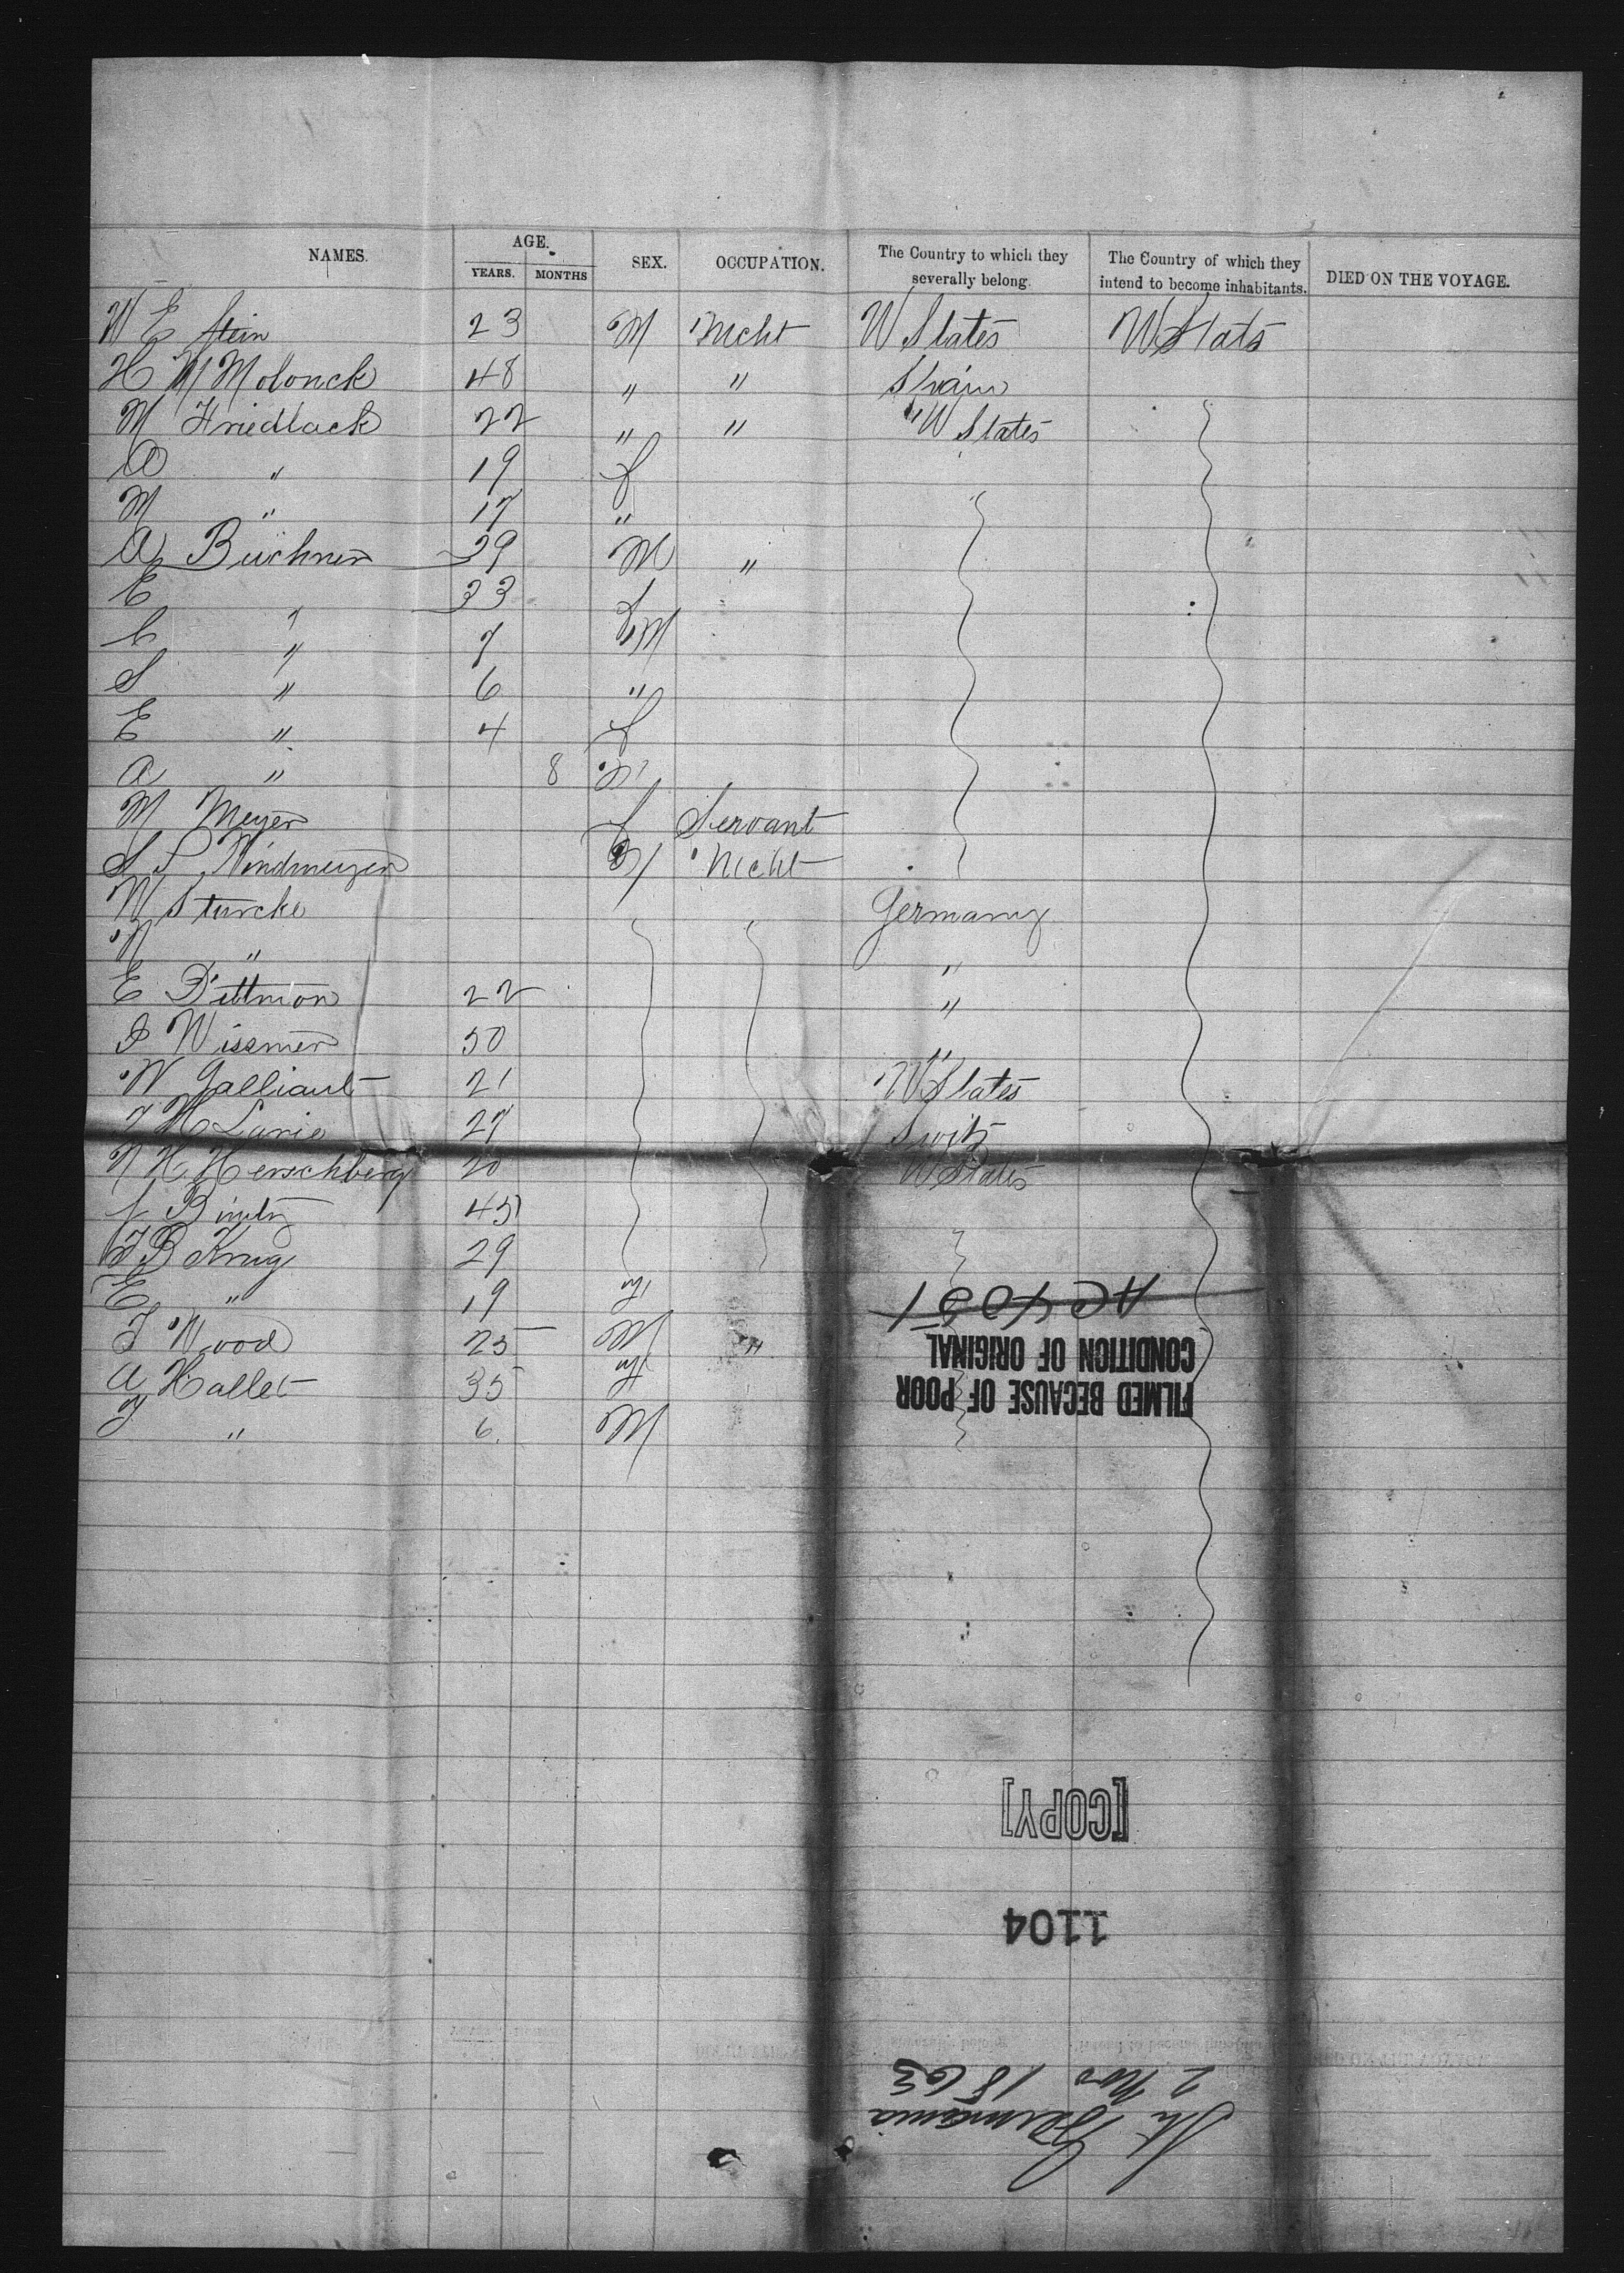 NAMES. AGE. YEARS. MONTHS SEX. OCCUPATION. The Country to which they severally belong. The Country of which they intend to become inhabitants. DIED ON THE VOYAGE.
W E Stein 23 M Mcht W States W Stats
H M Molonck 48 " " Spain
M Friedlack 22 " " W States
A " 19 f
M " 17 "
A Buchner 39 M "
E " 33 f
C " 7 M
S " 6 "
E " 4 f
A " 8 M
M Meyer f Servant
S S Windmuyer M Mcht
W Sturcke Germany
N " "
E Dittmon 22 "
I Wissmer 50 "
W Galliault 21 W States
F H Lanie 27 Switz
N H Herschberg 20 W States
45
F B Krug 29
E " 19 f
F Wood 25 M "
A Hallet 35 f
F " 6 M
AC 4051
FILMED BECAUSE OF POOR
CONDITION OF ORIGINAL
[COPY]
1104
Str Germania
2 Nov 1863